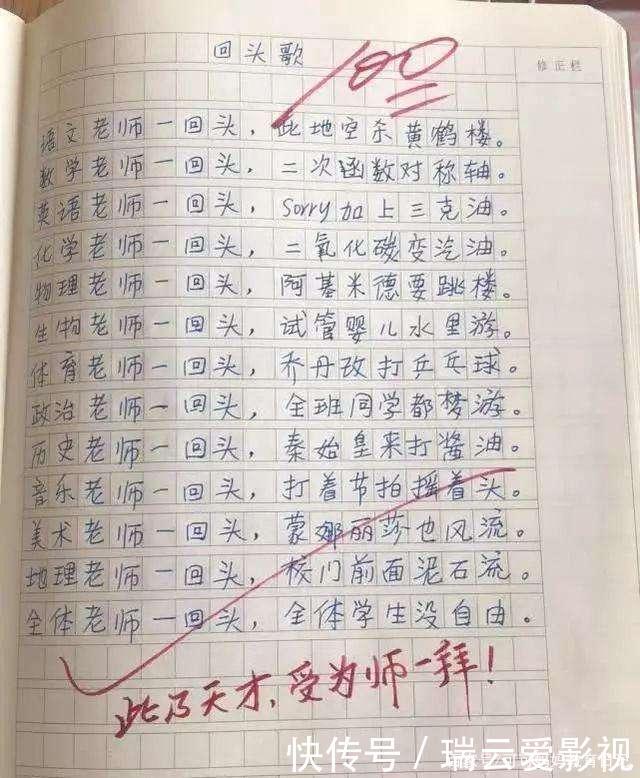 回头歌
100
修正栏
语文老师一回头，此地空杀黄鹤楼。
数学老师一回头，二次函数对称轴。
英语老师一回头，Sorry加上三克油。
化学老师一回头，二氧化碳变汽油。
物理老师一回头，阿基米德要跳楼。
生物老师一回头，试管婴儿水里游。
体育老师一回头，乔丹改打乒乓球。
政治老师一回头，全班同学都梦游。
历史老师一回头，秦始皇来打酱油。
音乐老师一回头，打着节拍摇着头。
美术老师一回头，蒙娜丽莎也风流。
地理老师一回头，校门前面泥石流。
全体老师一回头，全体学生没自由。
此乃天才，受为师一拜！
快传号／瑞云爱影视